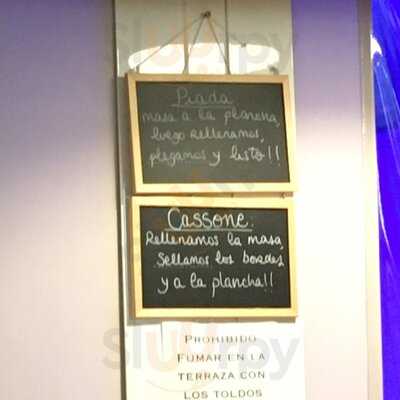 Piada
masa a la plancha,
luego Rellenamos,
plegamos y listo!!
Cassone.
Rellenamos la masa,
Sellamos los bordes
y a la plancha!!
PROHIBIDO
FUMAR EN LA
TERRAZA CON
LOS TOLDOS